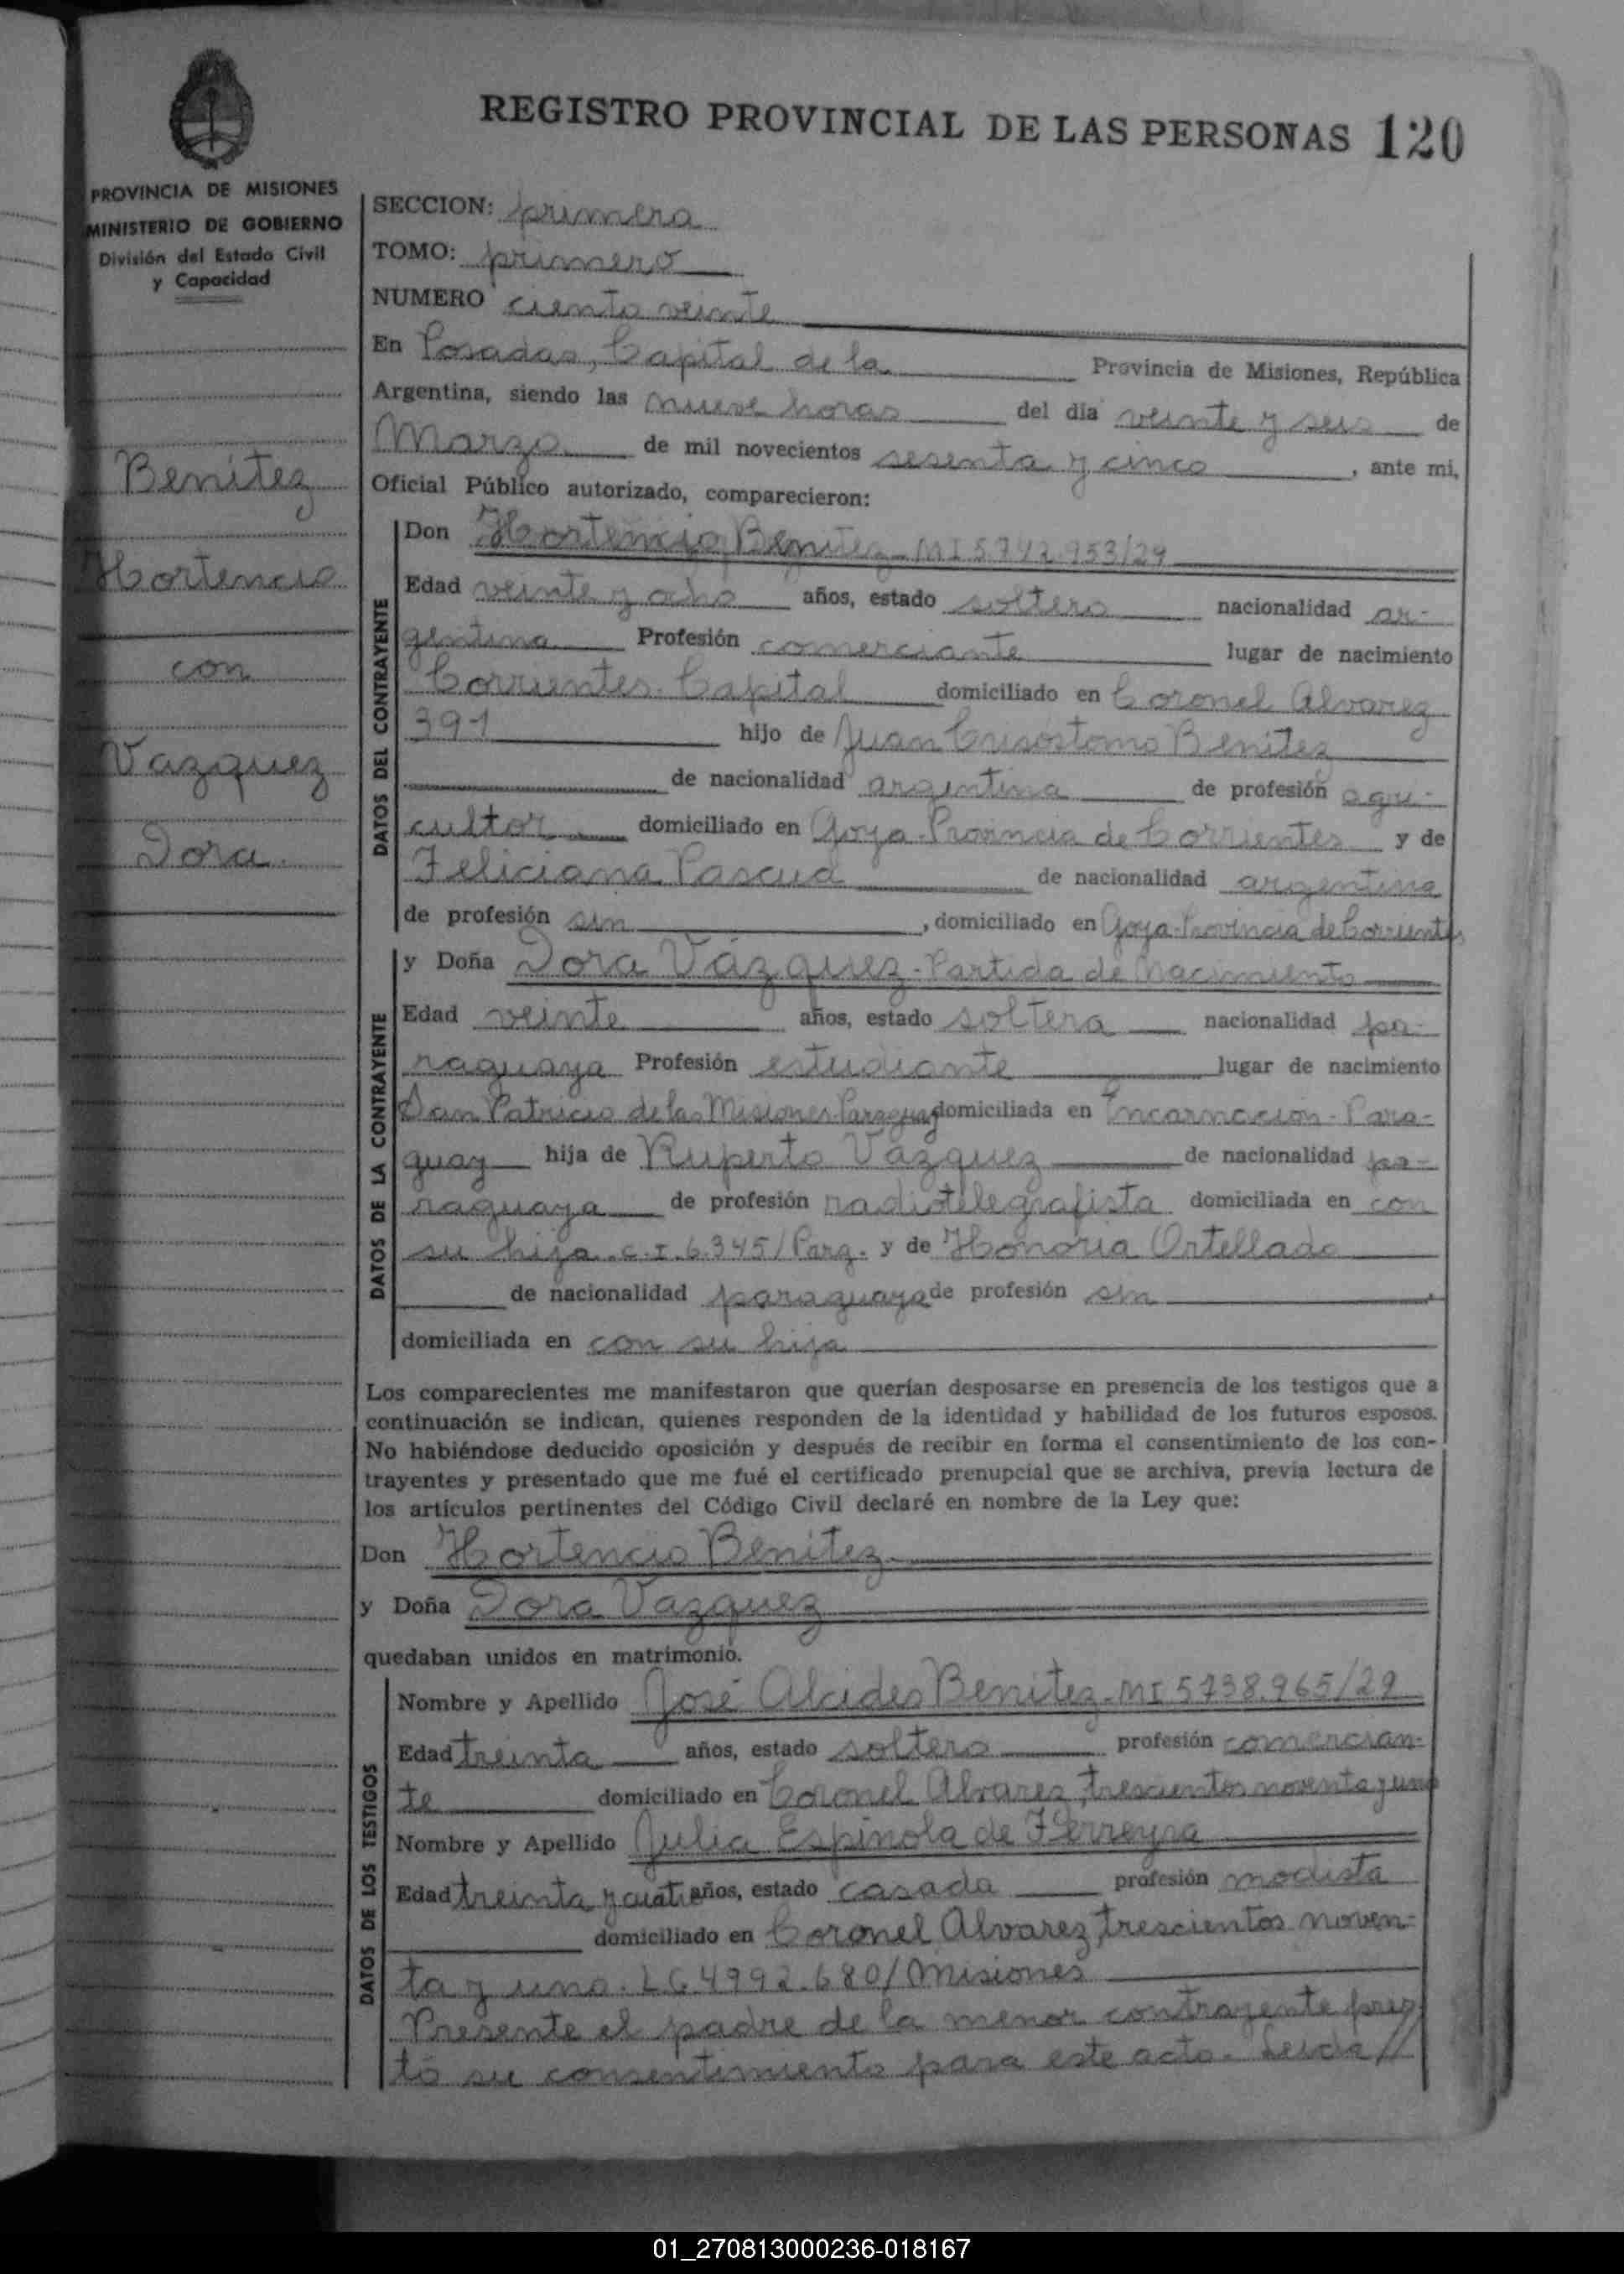 REGISTRO PROVINCIAL DE LAS PERSONAS 120
PROVINCIA DE MISIONES
MINISTERIO DE GOBIERNO
División del Estado Civil
y Capacidad
Benítez
Hortencio
con
Vazquez
Dora
SECCION: primera
TOMO: primero
NUMERO ciento veinte
En Posadas, Capital de la Provincia de Misiones, República
Argentina, siendo las nueve horas del día veinte y seis de
Marzo de mil novecientos sesenta y cinco, ante mi,
Oficial Público autorizado, comparecieron:
DATOS DEL CONTRAYENTE
Don Hortencio Benítez - MI 5.742.953/29
Edad veinte y ocho años, estado soltero nacionalidad ar-
gentina Profesión comerciante lugar de nacimiento
Corrientes - Capital domiciliado en Coronel Alvarez
391 hijo de Juan Crisóstomo Benítez
de nacionalidad argentina de profesión agri-
cultor domiciliado en Goya - Provincia de Corrientes y de
Feliciana Pascua de nacionalidad argentina
de profesión sin, domiciliado en Goya - Provincia de Corrientes
DATOS DE LA CONTRAYENTE
y Doña Dora Vázquez - Partida de Nacimiento
Edad veinte años, estado soltera nacionalidad pa-
raguaya Profesión estudiante lugar de nacimiento
San Patricio de las Misiones-Paraguay domiciliada en Encarnación - Para-
guay hija de Ruperto Vázquez de nacionalidad pa-
raguaya de profesión radiotelegrafista domiciliada en con
su hija. C.I. 6.345/Parg. y de Honoria Ortellado
de nacionalidad paraguaya de profesión sin,
domiciliada en con su hija
Los comparecientes me manifestaron que querían desposarse en presencia de los testigos que a
continuación se indican, quienes responden de la identidad y habilidad de los futuros esposos.
No habiéndose deducido oposición y después de recibir en forma el consentimiento de los con-
trayentes y presentado que me fué el certificado prenupcial que se archiva, previa lectura de
los artículos pertinentes del Código Civil declaré en nombre de la Ley que:
Don Hortencio Benítez
y Doña Dora Vazquez
quedaban unidos en matrimonio.
DATOS DE LOS TESTIGOS
Nombre y Apellido José Alcides Benítez - MI 5738.965/29
Edad treinta años, estado soltero profesión comercian-
te domiciliado en Coronel Alvarez, trescientos noventa y uno
Nombre y Apellido Julia Espínola de Ferreyra
Edad treinta y cuatro años, estado casada profesión modista
domiciliado en Coronel Alvarez, trescientos noven-
ta y uno. LC 4992.680/Misiones
Presente el padre de la menor contrayente pres-
tó su consentimiento para este acto. Leída //
01_270813000236-018167